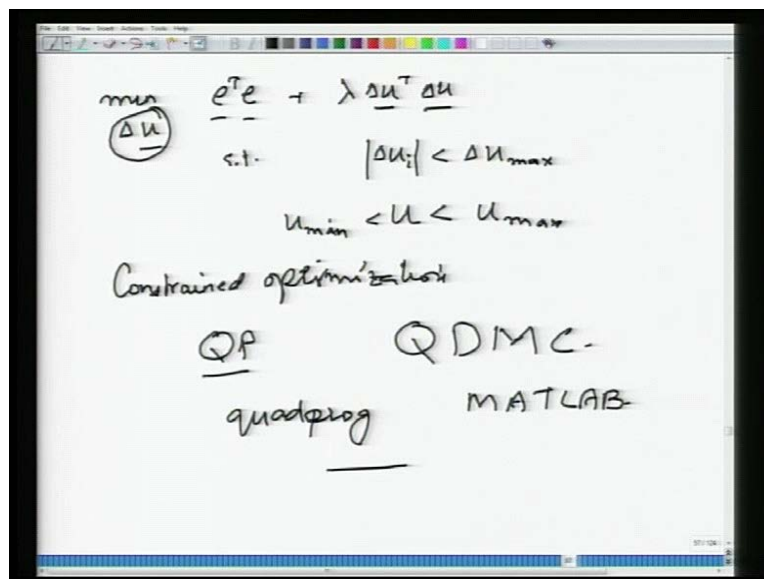 File Edit View Insert Actions Tools Help
min e^T e + λ Δu^T Δu
Δu
s.t. |Δu_i| < Δu_max
u_min < u < u_max
Constrained optimization
QP QDMC.
quadprog MATLAB